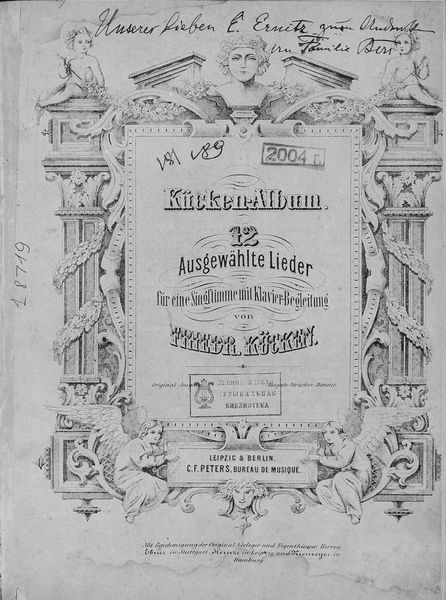 Unserer lieben E. Ernitz zum
von Familie
181 189
2004 г.
Kücken-Album.
12
Ausgewählte Lieder
für eine Singstimme mit Klavier-Begleitung
von
FRIEDR. KÜCKEN.
Original-Ausgabe für tiefere Stimme
МУЗЫКАЛЬНАЯ
БИБЛИОТЕКА
18719
LEIPZIG & BERLIN.
C. F. PETERS, BUREAU DE MUSIQUE.
Mit Genehmigung der Original-Verleger und Eigenthümer, Herren
Ebner in Stuttgart, Kistner in Leipzig und Niemeyer in
Hamburg.